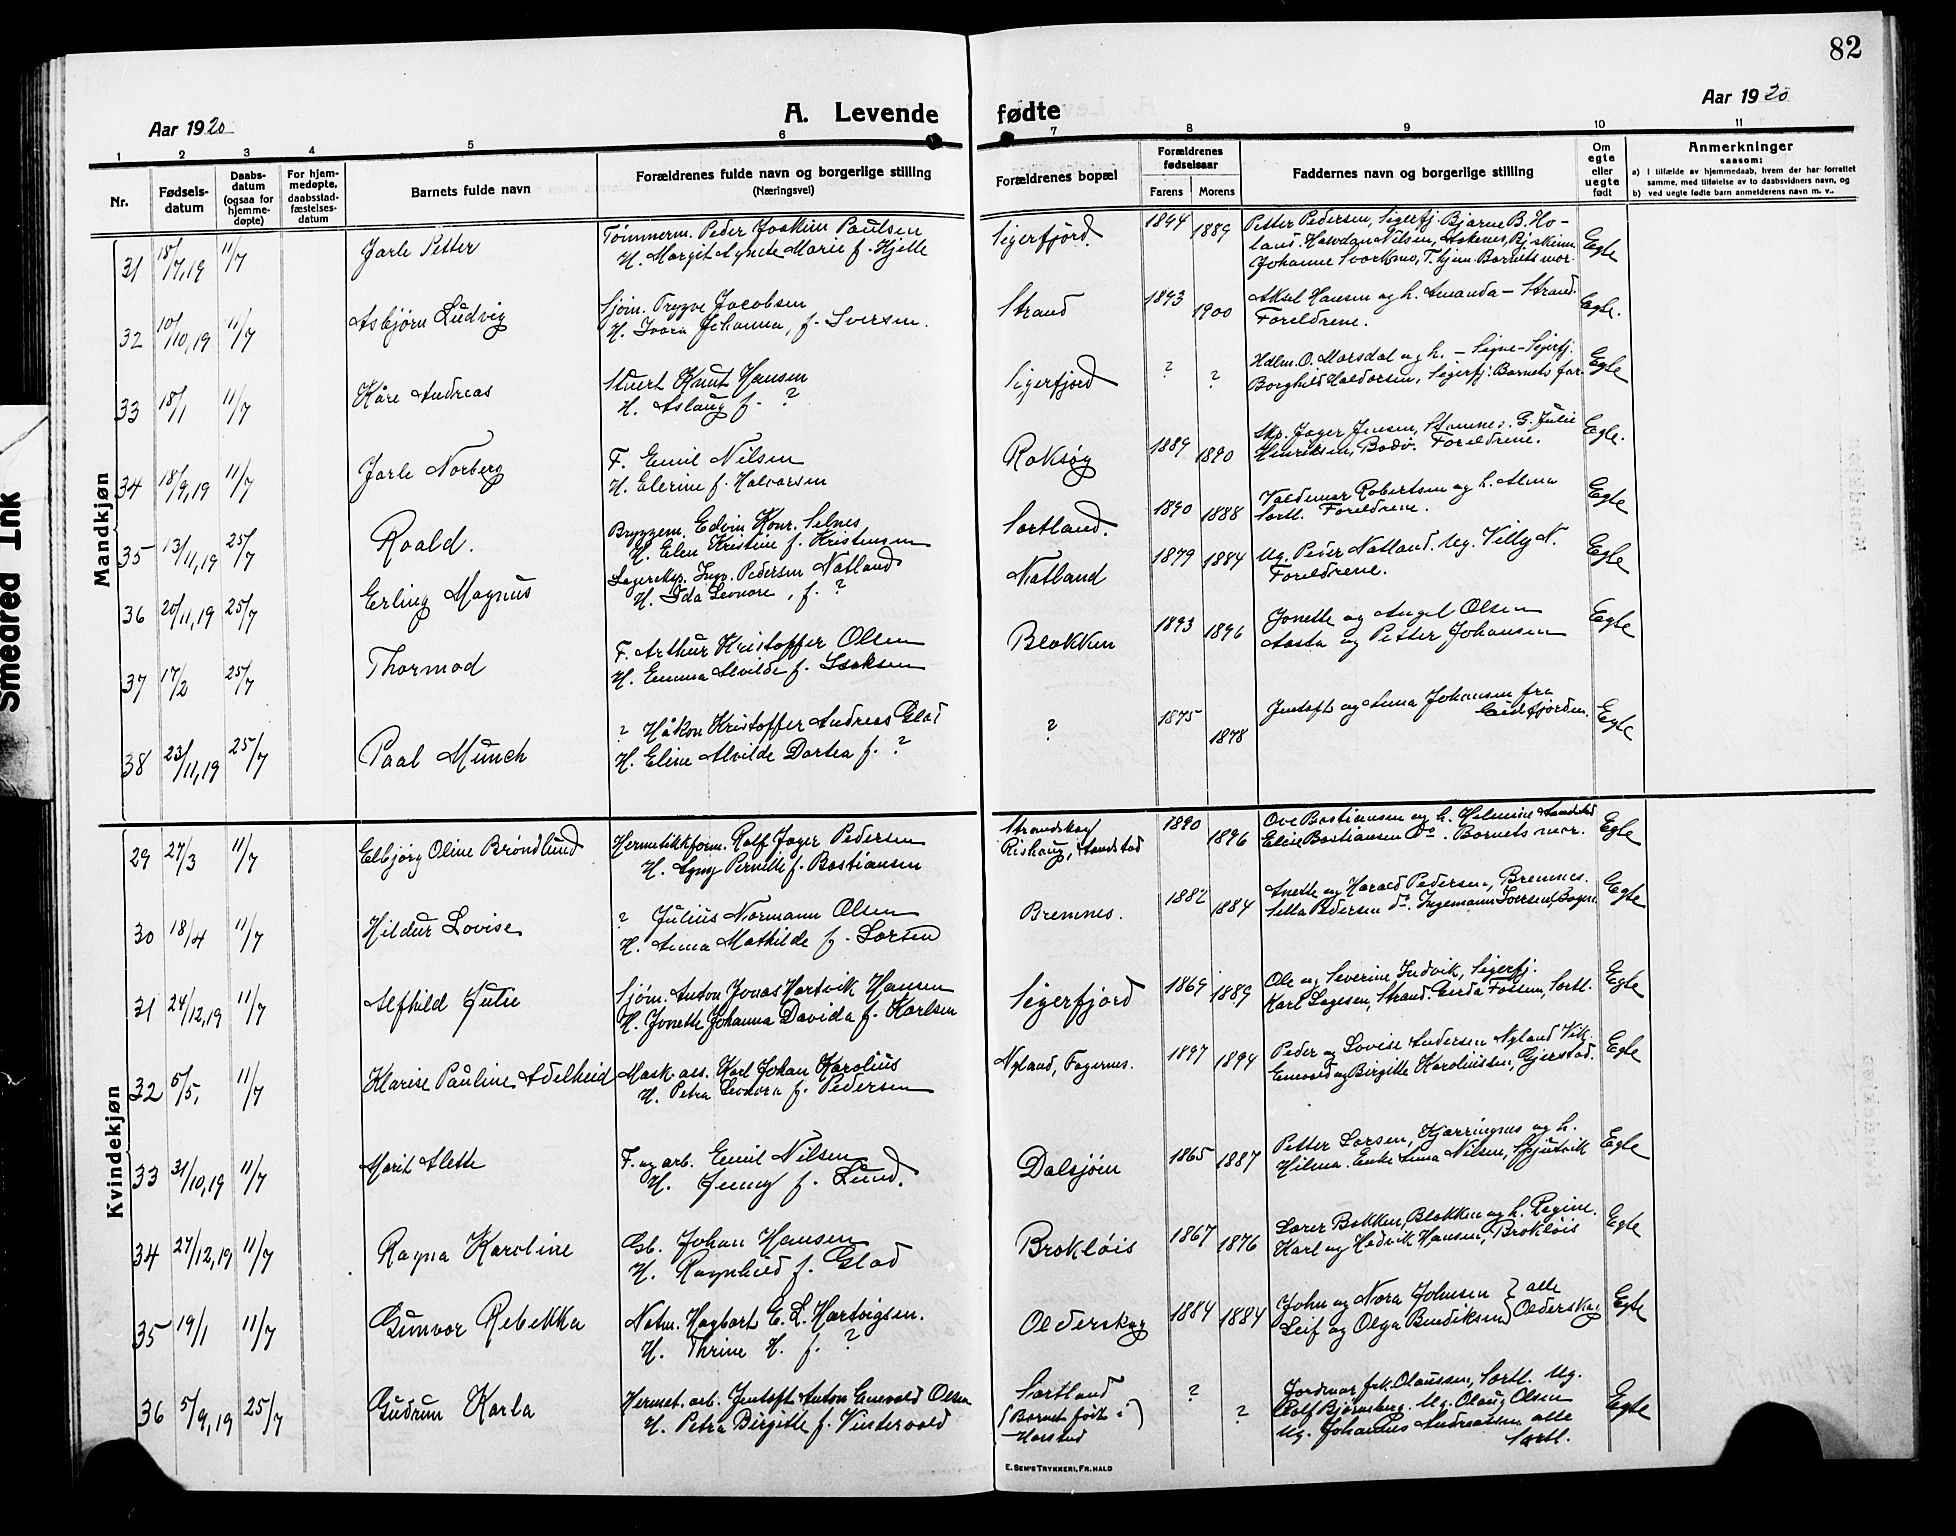 82
Aar 1920
A. Levende
fødte
Aar 1920
1 2 3 4 5 6 7 8 9 10 11
Nr.
Fødsels-
datum
Daabs-
datum
(ogsaa for
hjemme-
døpte)
For hjem-
medøpte,
daabsstad-
fæstelses-
datum
Barnets fulde navn
Forældrenes fulde navn og borgerlige stilling
(Næringsvei)
Forældrenes bopæl
Forældrenes
fødselsaar
Farens Morens
Faddernes navn og borgerlige stilling
Om
egte
eller
uegte
født
Anmerkninger
saasom:
a) I tilfælde av hjemmedaab, hvem der har forrettet
samme, med tilføielse av to daabsvidners navn, og
b) ved uegte fødte barn anmelderens navn m. v..
Mandkjøn
31 18/7,19 11/7 Jarle Petter
Tømmerm. Peder Joakim Paulsen
H. Margit Agnete Marie f. Hjelle
Sigerfjord. 1894 1889
Petter Pedersen, Sigerfj. Bjarne B. Ho-
land. Halvdan Nilsen,
Johanne Svortemo, Barnets mor.
Egte
32 10/10,19 11/7 Asbjørn Ludvig
Sjøm. Trygve Jacobsen
H. Ivara Johanna, f. Iversen.
Strand 1893 1900
Aksel Hansen og h. Amanda – Strand.
Foreldrene.
Egte.
33 18/1 11/7 Kåre Andreas
Stuert Knut Hansen
H. Aslaug f. ?
Sigerfjord ? ?
Hdlm. O. Marsdal og h. – Signe – Sigerfj.
Borghild Haldorsen, Sigerfj. Barnets far.
Egte
34 18/9,19 11/7 Jarle Norberg
F. Emil Nilsen
H. Elerine f. Halvorsen
Roksøy 1889 1890
Skp. Jager Jensen, Stemnes. G. Julie
Henriksen, Bodø. Foreldrene.
Egte.
35 13/11,19 25/7 Roald.
Bryggem. Edvin Konr. Selnes
H. Elen Kristine f. Kristensen
Sortland. 1890 1888
Valdemar Robertsen og h. Alma
Sortl. Foreldrene.
Egte
36 20/11,19 25/7 Erling Magnus
Ingv. Pedersen Natland
H. Ida Leonore, f. ?
Natland 1879 1884
Ug. Peder Natland. Ug. Villy N.
Foreldrene.
Egte
37 17/2 25/7 Thormod
F. Arthur Kristoffer Olsen
H. Emma Alvilde f. Isaksen
Blokken 1893 1896
Jonette og Angel Olsen
Aasta og Petter Johansen
Egte
38 23/11,19 25/7 Paal Munch
? Håkon Kristoffer Andreas Glad
H. Eline Alvilde Dortea f. ?
? 1875 1878
Jentoft og Anna Johansen fra
Eidsfjorden.
Egte
Kvindekjøn
29 27/3 11/7 Elbjørg Oline Brøndlund
Hermetikkform. Rolf Jager Pedersen
H. Agny Pernille f. Bastiansen
Strandskog
Rishaug, Sandstad
1890 1896
Ove Bastiansen og h. Helmine Sandstad
Eline Bastiansen Do. Barnets mor.
Egte
30 18/4 11/7 Hildur Lovise
? Julius Normann Olsen
H. Anna Mathilde f. Larsen
Bremnes. 1882 1884
Anette og Harald Pedersen, Bremnes.
Silla Pedersen do. Ingemann Iversen, Bogen.
Egte
31 24/12,19 11/7 Alfhild Julie
Sjøm. Anton Jonas Hartvik Hansen
H. Jonette Johanna Davida f. Karlsen
Sigerfjord 1869 1889
Ole og Severine Indvik, Sigerfj.
Karl Lagesen, Strand. Gerda Fossum, Sortl.
Egte
32 5/5, 11/7 Klarise Pauline Adelheid
Mask.ass. Karl Johan Karolius
H. Petra Leonora f. Pedersen
Nyland, Fagernes. 1897 1894
Peder og Lovise Andersen Nyland Vik.
Enevold og Birgitte Karoliussen, Gjerstad.
Egte
33 31/10,19 11/7 Marit Alette
F. og arb. Emil Nilsen
H. Jenny f. Lund.
Dalsjøen 1865 1887
Petter Larsen, Kjerringnes og h.
Hilma. Enke Anna Nilsen, Spjutvik
Egte
34 27/12,19 11/7 Ragna Karoline
Gb. Johan Hansen
H. Ragnhild f. Glad
Brokløis 1867 1876
Lorer Bakken, Blokken og h. Regine.
Karl og Hedvik Hansen, Brokløis
Egte
35 19/1 11/7 Gunvor Rebekka
Notm. Hagbart E. L. Hartvigsen.
H. Thrine H. f. ?
Olderskog 1884 1884
John og Nora Johnsen } alle
Leif og Olga Bendiksen } Olderskog
Egte
36 5/9,19 25/7 Gudrun Karla
Hermet.arb. Jentoft Anton Enevold Olsen
H. Petra Birgitte f. Vintervold
Sortland
(Barnet født i
Harstad)
? ?
Jordmor frk. Olaussen, Sortl. Ug.
Rolf Bjørnsberg. Ug. Olaug Olsen
Ug. Johannes Andreassen alle
Sortl.
Egte
E. SEM'S TRYKKERI, FR. HALD
Smeared Ink